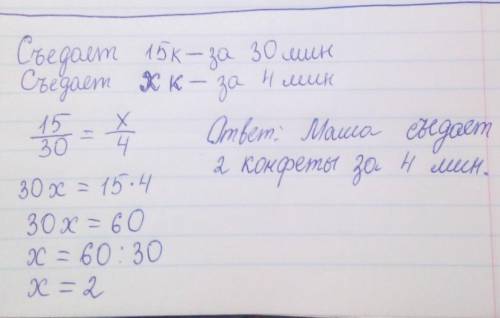 Съедает 15к – за 30 мин
Съедает х к – за 4 мин
15/30 = х/4
30х = 15·4
30х = 60
х = 60 : 30
х = 2
Ответ: Маша съедает
2 конфеты за 4 мин.